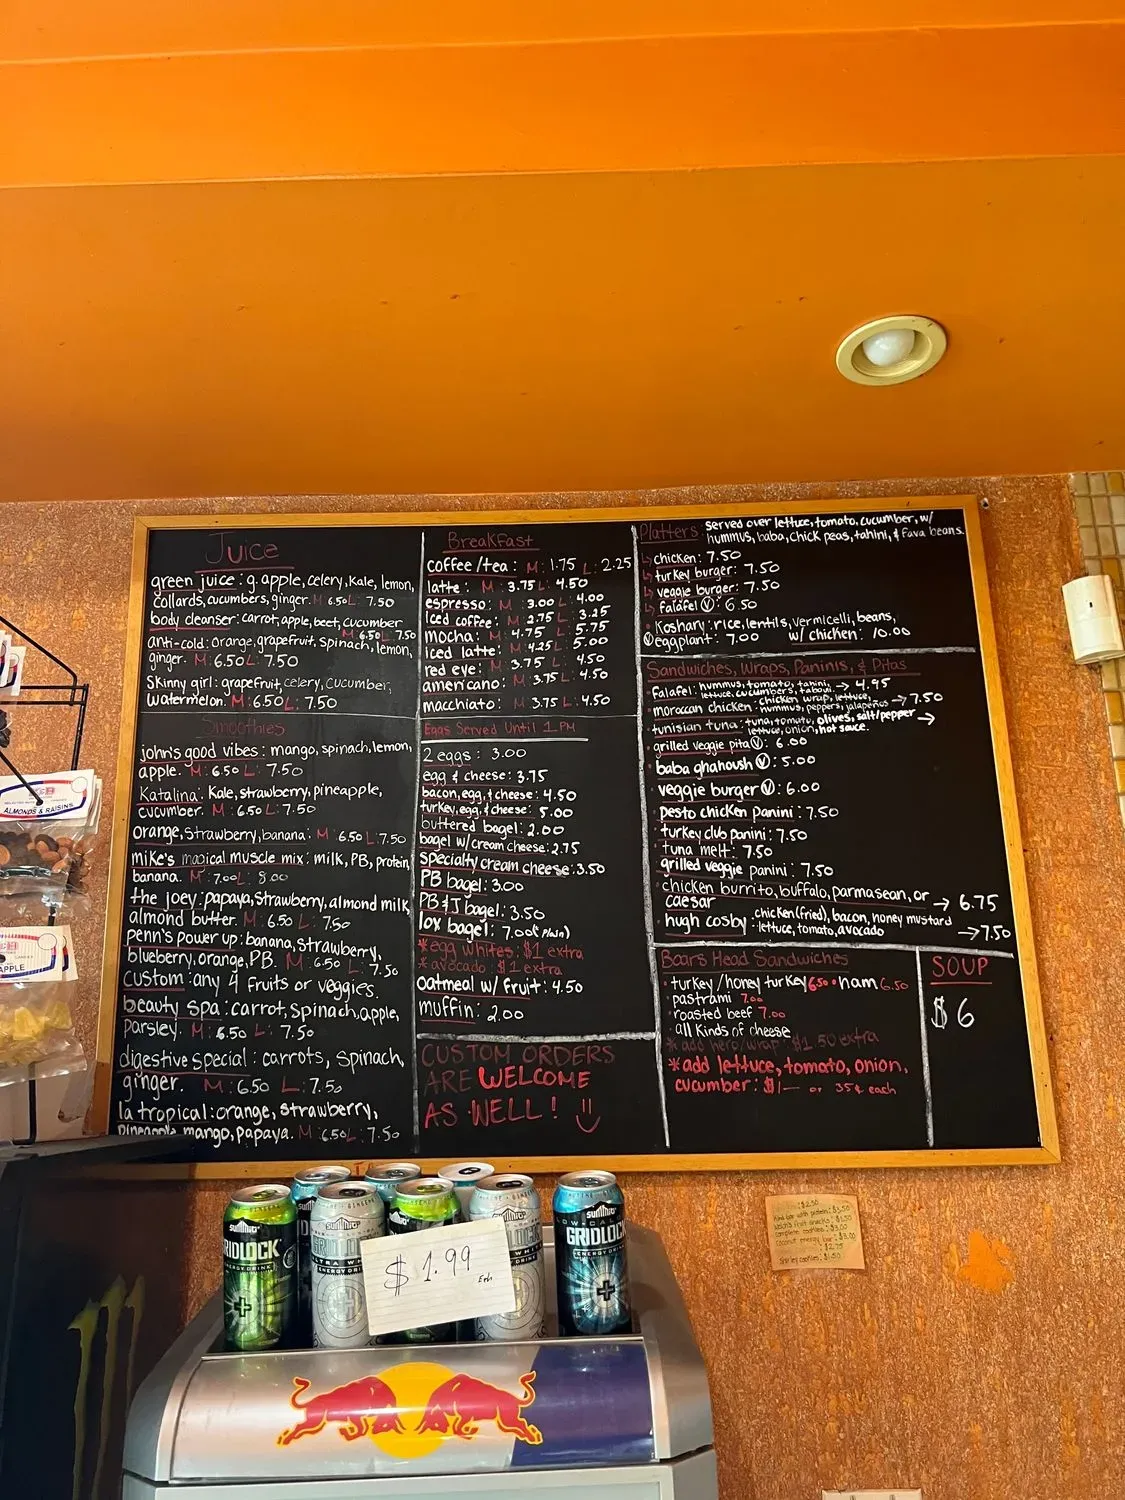 Juice
green juice: g. apple, celery, Kale, lemon,
collards, cucumbers, ginger. M: 6.50 L: 7.50
body cleanser: carrot, apple, beet, cucumber
M: 6.50 L: 7.50
anti-cold: orange, grapefruit, spinach, lemon,
ginger. M: 6.50 L: 7.50
Skinny girl: grapefruit, celery, cucumber,
watermelon. M: 6.50 L: 7.50
Smoothies
john's good vibes: mango, spinach, lemon,
apple. M: 6.50 L: 7.50
Katalina: Kale, strawberry, pineapple,
cucumber. M: 6.50 L: 7.50
orange, strawberry, banana: M: 6.50 L: 7.50
miKe's magical muscle mix: milk, PB, protein,
banana. M: 7.00 L: 8.00
the joey: papaya, strawberry, almond milk,
almond butter. M: 6.50 L: 7.50
penn's power up: banana, strawberry,
blueberry, orange, PB. M: 6.50 L: 7.50
custom: any 4 fruits or veggies.
beauty spa: carrot, spinach, apple,
parsley. M: 6.50 L: 7.50
digestive special: carrots, spinach,
ginger. M: 6.50 L: 7.50
la tropical: orange, strawberry,
pineapple, mango, papaya. M: 6.50 L: 7.50
BreaKfast
coffee/tea: M: 1.75 L: 2.25
latte: M: 3.75 L: 4.50
espresso: M: 3.00 L: 4.00
Iced coffee: M: 2.75 L: 3.25
mocha: M: 4.75 L: 5.75
Iced latte: M: 4.25 L: 5.00
red eye: M: 3.75 L: 4.50
americano: M: 3.75 L: 4.50
macchiato: M: 3.75 L: 4.50
Eggs Served Until 1 PM
2 eggs: 3.00
egg & cheese: 3.75
bacon, egg, & cheese: 4.50
turkey, egg, & cheese: 5.00
buttered bagel: 2.00
bagel w/ cream cheese: 2.75
specialty cream cheese: 3.50
PB bagel: 3.00
PB & J bagel: 3.50
lox bagel: 7.00 (plain)
*egg whites: $1 extra
*avocado: $1 extra
oatmeal w/ fruit: 4.50
muffin: 2.00
CUSTOM ORDERS
ARE WELCOME
AS WELL!
Platters: served over lettuce, tomato, cucumber, w/
hummus, baba, chick peas, tahini, & fava beans.
chicken: 7.50
turkey burger: 7.50
veggie burger: 7.50
falafel V: 6.50
Koshary: rice, lentils, vermicelli, beans,
V eggplant: 7.00 w/ chicken: 10.00
Sandwiches, Wraps, Paninis, & Pitas
falafel: hummus, tomato, tahini, → 4.95
lettuce, cucumbers, tabouli.
moroccan chicken: chicken wrap, lettuce, → 7.50
hummus, peppers, jalapeños
tunisian tuna: tuna, tomato, olives, salt/pepper →
lettuce, onion, hot sauce.
grilled veggie pita V: 6.00
baba ghanoush V: 5.00
veggie burger V: 6.00
pesto chicken panini: 7.50
turkey club panini: 7.50
tuna melt: 7.50
grilled veggie panini: 7.50
chicken burrito, buffalo, parmasean, or → 6.75
caesar
hugh cosby: chicken (fried), bacon, honey mustard
lettuce, tomato, avocado → 7.50
Boars Head Sandwiches
turkey/honey turkey 6.50 • ham 6.50
pastrami 7.00
roasted beef 7.00
all kinds of cheese
*add hero/wrap: $1.50 extra
*add lettuce, tomato, onion,
cucumber: $1— or 35¢ each
SOUP
$6
ALMONDS & RAISINS
APPLE
summit
GRIDLOCK
ENERGY DRINK
summit
ENERGY DRINK
summit
GRIDLOCK
ENERGY DRINK
$1.99